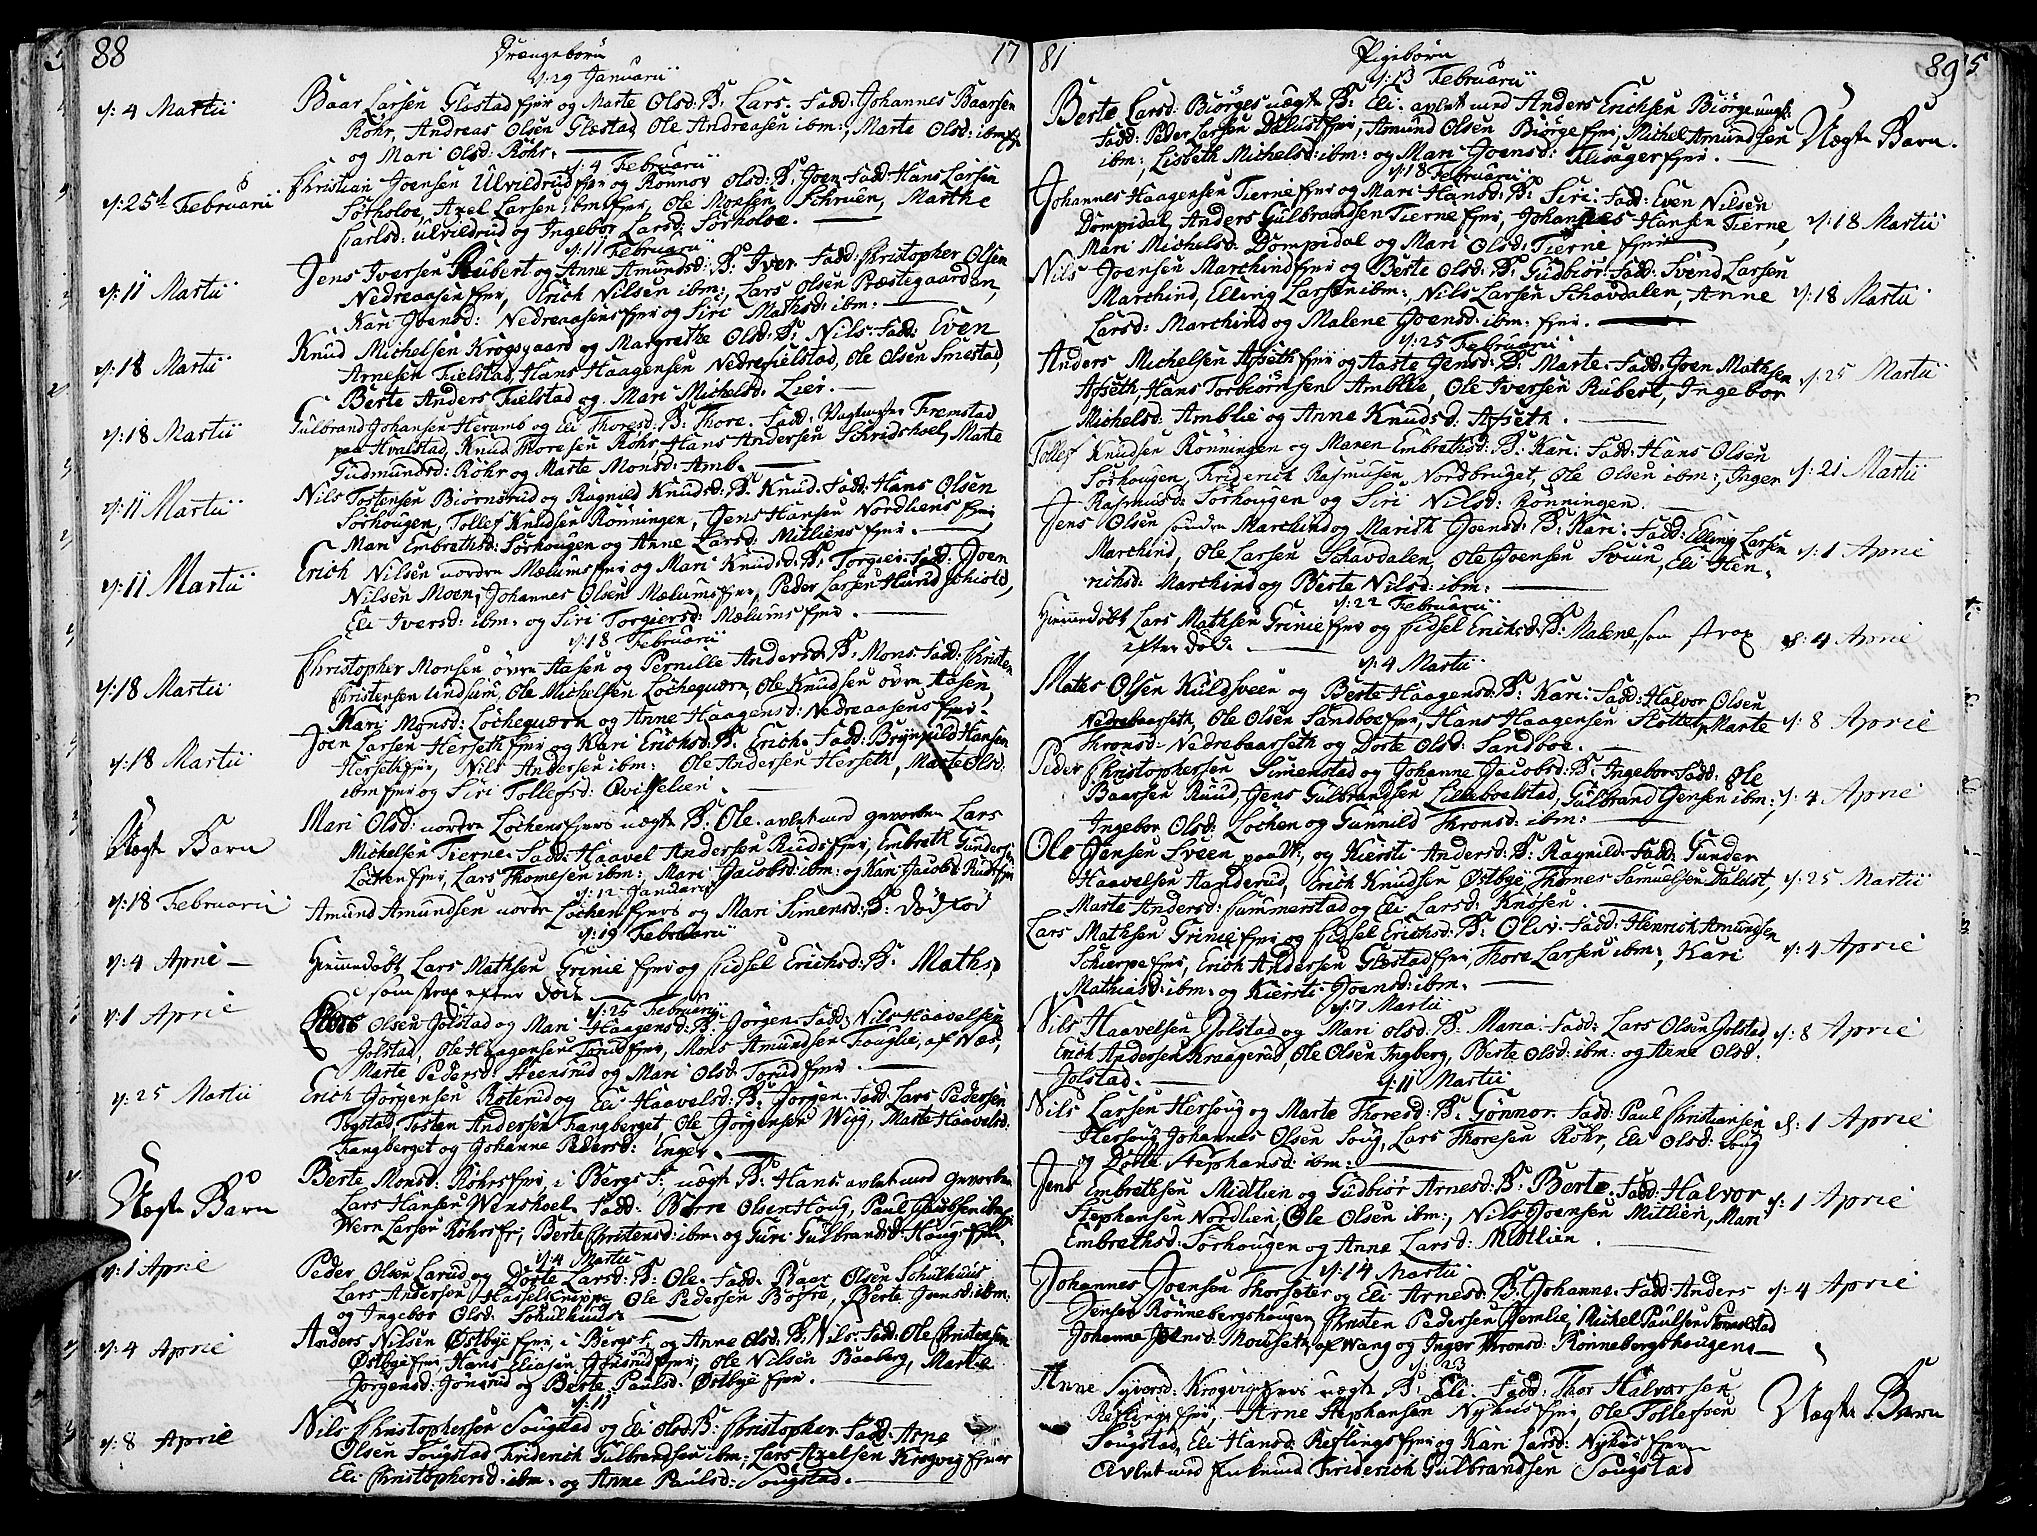 88 Drængebørn 17
d: 29 Januarii
d: 4 Martii Baar Larsen Glæstad fjer og Marte Olsd: B: Lars. Fadd: Johannes Baarsen
Röhr, Andreas Olsen Glæstad, Ole Andreasen ibm:, Marte Olsd: ibm
og Mari Olsd: Röhr.
d: 4 Februarii
d: 25de Februarii Christian Joensen Ulvildrud fjer og Rönnov Olsd: B: Joen Fadd: Hans Larsen
Sörholoe, Axel Larsen ibm fjer, Ole Monsen Schruen, Marthe
Carlsd: Ulvildrud og Ingebor Larsd: Sörholoe.
d: 11 Februarii
d: 11 Martii Jens Iversen Rubert og Anne Amundsd: B: Iver. Fadd: Christopher Olsen
Nedreaasen fjer, Erich Nilsen ibm:, Lars Olsen Præstegaarden,
Kari Joensd: Nedreaasens fjer og Siri Mathsd: ibm.
d: 18 Martii Knud Michelsen Krogsgaard og Margrethe Olsd: B: Nils. Fadd: Even
Arnesen Fielstad, Hans Haagensen Nedrefielstad, Ole Olsen Smestad,
Berte Anders Fielstad og Mari Michelsd: Lier.
d: 18 Martii Gulbrand Johansen Herams og Eli Thoresd: B: Thore. Fadd: Fremstad
paa Hvalstad, Knud Thoresen Röhr, Hans Andersen Schridshoel, Marte
Gudmundsd: Röhr og Marte Monsd: Amb.
d: 11 Martii Nils Tostensen Biörnsrud og Ragnild Knudsd: B: Knud. Fadd: Hans Olsen
Sörhougen, Tollef Knudsen Rönningen, Jens Hansen Nordliens fjer
Mari Embrethsd: Sörhougen og Anne Larsd: Mitliens fjer.
d: 11 Martii Erich Nilsen nordre Mælums fjer og Mari Knudsd: B: Torgier. Fadd: Joen
Nilsen Moen, Johannes Olsen Mælums fjer, Peder Larsen Hundschiold,
Eli Iversd: ibm: og Siri Torgiersd: Mælums fjer.
d: 18 Februarii
d: 18 Martii Christopher Monsen övre Aasen og Pernille Andersd: B: Mons. Fadd: Christen
Christensen Undsum, Ole Michelsen Löcheqværn, Ole Knudsen övre Aasen,
Mari Monsd: Löcheqværn og Anne Haagensd: Nedreaasens fjer.
d: 18 Martii Joen Larsen Herseth fjer og Kari Erichsd: B: Erich. Fadd: Brynild Hansen
Herseth fjer, Nils Andersen ibm: Ole Andersen Herseth, Marte Olsd:
ibm fjer og Siri Tollefsd: Qvisselien.
Uægte Barn Mari Olsd: nordre Löchens fjers uægte B: Ole. avlet med gevorben Lars
Michelsen Tierne. Fadd: Haavel Andersen Ruds fjer, Embreth Gundersen
Löcken fjer, Lars Thomesen ibm:, Mari Jacobsd: ibm: og Kari Jacobsd: Ruds fjer
d: 12 Januarii
d: 18 Februarii Amund Amundsen nordre Löchen fjers og Mari Simensd: B: Död Föd
d: 19 Februarii
d: 4 Aprie Hiemmedöbt Lars Mathsen Grinie fjer og Sidsel Erichsd: B: Maths,
som strax efter döde
d: 25 Februarii
d: 1 Aprie Olsen Jolstad og Mari Haagensd: B: Jörgen. Fadd: Nils Haavelsen
Jolstad, Ole Haagensen Torud fjer, Mons Amundsen Fouglie, af Næs,
Marte Pedersd: Steensrud og Mari Olsd: Torud fjer.
d: 25 Martii Erich Jörgensen Röterud og Eli Haavelsd: B: Jörgen. Fadd: Lars Pedersen
Togstad, Tosten Andersen Frangberget Ole Jörgensen Wiig, Marte Haavelsd:
Frangberget og Johanne Pedersd: Enger.
Uægte Barn Berte Monsd: Röhrs fjer, i Bergs S: uægte B: Hans avlet med gevorben
Lars Hansen Wenskoel. Fadd: Börre Olsen Houg, Paul
Wern Larsen Röhrs fjer, Berte Christensd: ibm: og Guri Gulbrandsd: Hougs fjer.
d: 4 Martii
d: 1 Aprie Peder Olsen Larud og Dorte Larsd: B: Ole. Fadd: Baar Olsen Schulhuus
Lars Andersen Hasselkneppe, Ole Pedersen Böhre, Berte Joensd: ibm:
og Ingebor Olsd: Schulhuus.
d: 4 Aprie Anders Nilsen Østbye fjer, i Bergs S, og Anne Olsd: B: Nils. Fadd: Ole Christensen
Østbye fjer, Hans Eliasen Jönsrud fjer, Ole Nilsen Baaberg, Marte
Jörgensd: Jönsrud og Berte Paulsd: Østbye fjer.
d: 11
d: 8 Aprie Nils Christophersen Sougstad og Eli Olsd: B: Christopher. Fadd: Arne
Olsen Sougstad, Friderich Gulbrandsen ibm:, Lars Axelsen Krogvig fjer
Eli Christophersd: ibm: og Anne Paulsd: Sougstad.
81 Pigebørn 89
d: 13 Februarii
Berte Larsd: Biörges uægte B: Eli. avlet med Anders Erichsen Biörge ungk:
Fadd: Peder Larsen Dalust fjer, Amund Olsen Biörge fjer, Michel Amundsen Uægte Barn.
ibm:, Lisbeth Michelsd: ibm: og Mari Joensd: Alisager fjer.
d: 18 Februarii
Johannes Haagensen Tierne fjer og Mari Hansd: B: Siri. Fadd: Even Nilsen
Dompidal, Anders Gulbrandsen Tierne fjer, Johannes Hansen Tierne, d: 18 Martii
Mari Michelsd: Dompidal og Mari Olsd: Tierne fjer
Nils Joensen Marchind fjer og Berte Olsd: B: Gudbiör. Fadd: Svend Larsen
Marchind, Elling Larsen ibm:, Nils Larsen Schavdalen, Anne d: 18 Martii
Larsd: Marchind og Malene Joensd: ibm: fjer.
d: 25 Februarii
Anders Michelsen Afseth fjer og Aaste Gensd: B: Marte. Fadd: Joen Mathsen
Afseth, Hans Torbiörnsen Amblie, Ole Iversen Rubert, Ingebor d: 25 Martii
Michelsd: Amblie og Anne Knudsd: Afseth.
Tollef Knudsen Rönningen og Maren Embrethsd: B: Kari. Fadd: Hans Olsen
Sörhougen, Friderich Rasmusen Nordbruget, Ole Olsen ibm:, Inger d: 21 Martii
Rasmusd: Sörhougen og Siri Nilsd: Rönningen.
Jens Olsen söndre Marchind og Marith Joensd: B: Kari. Fadd: Elling Larsen
Marchind, Ole Larsen Schavdalen, Ole Joensen Sviun, Eli Hen- d: 1 Aprie
richsd: Marchind og Berte Nilsd: ibm:
d: 22 Februarii
Hiemmedöbt Lars Mathsen Grinie fjer og Sidsel Erichsd: B: Malene, som strax d: 4 Aprie
efter döde.
d: 4 Martii
Mates Olsen Kuldsveen og Berte Haagensd: B: Kari. Fadd: Halvor Olsen
Nedrebaarseth, Ole Olsen Sandboe fjer, Hans Haagensen Slotten, Marte d: 8 Aprie
Thronsd: Nedrebaarseth og Dorte Olsd: Sandboe.
Peder Christophersen Simenstad og Johanne Jacobsd: B: Ingebor. Fadd: Ole
Baarsen Ruud, Jens Gulbrandsen Lilleboelstad, Gulbrand Gensen ibm:, d: 4 Aprie
Ingebor Olsd: Löchen og Gunnild Thronsd: ibm:
Ole Jensen Sveen paa, og Kiersti Andersd: B: Ragnild. Fadd: Gunder
Haavelsen Aanderud, Erich Knudsen Østbye, Thomes Samuelsen Dalust, d: 25 Martii
Marte Andersd: Gummerstad og Eli Larsd: Knosen.
Lars Mathsen Grinie fjer og Sidsel Erichsd: B: Oliv. Fadd: Henrich Amundsen
Schierpe fjer, Erich Andersen Glæstad fjer, Thore Larsen ibm:, Kari d: 4 Aprie
Mathiasd: ibm: og Kiersti Joensd: ibm:
d: 7 Martii
Nils Haavelsen Jolstad og Mari Olsd: B: Maria. Fadd: Lars Olsen Jolstad, d: 8 Aprie
Erich Andersen Kraagerud, Ole Olsen Ingberg, Berte Olsd: ibm: og Anne Olsd:
Jolstad.
d: 11 Martii
Nils Larsen Hersoug og Marte Thoresd: B: Gönnor. Fadd: Paul Christiansen
Hersoug, Johannes Olsen Soug, Lars Thoresen Röhr, Eli Olsd: Soug d: 1 Aprie
og Dorte Stephansd: ibm:
Jens Embrethsen Midlien og Gudbiör Arnesd: B: Berte. Fadd: Halvor
Stephansen Nordlien, Ole Olsen ibm:, Nils Joensen Mitlien, Mari d: 1 Aprie
Embrethsd: Sörhougen og Anne Larsd: Mitlien.
d: 14 Martii
Johannes Joensen Thorsæter og Eli Arnesd: B: Johanne. Fadd: Anders d: 4 Aprie
Jensen Rönnebergshougen, Christen Pedersen Jemlie, Michel Paulsen
Johanne Jensd: Mouseth, af Wang og Inger Thronsd: Rönnebergshougen
d: 23
Anne Syversd: Krogvigs fjers uægte B: Eli. Fadd: Thor Halvorsen
Reflings fjer, Arne Stephansen Nyhus fjer, Ole Tollefsen Uægte Barn
Sougstad, Eli Hansd: Reflings fjer og Kari Larsd: Nyhus fjer
Avlet med Enkemand Friderich Gulbrandsen Sougstad